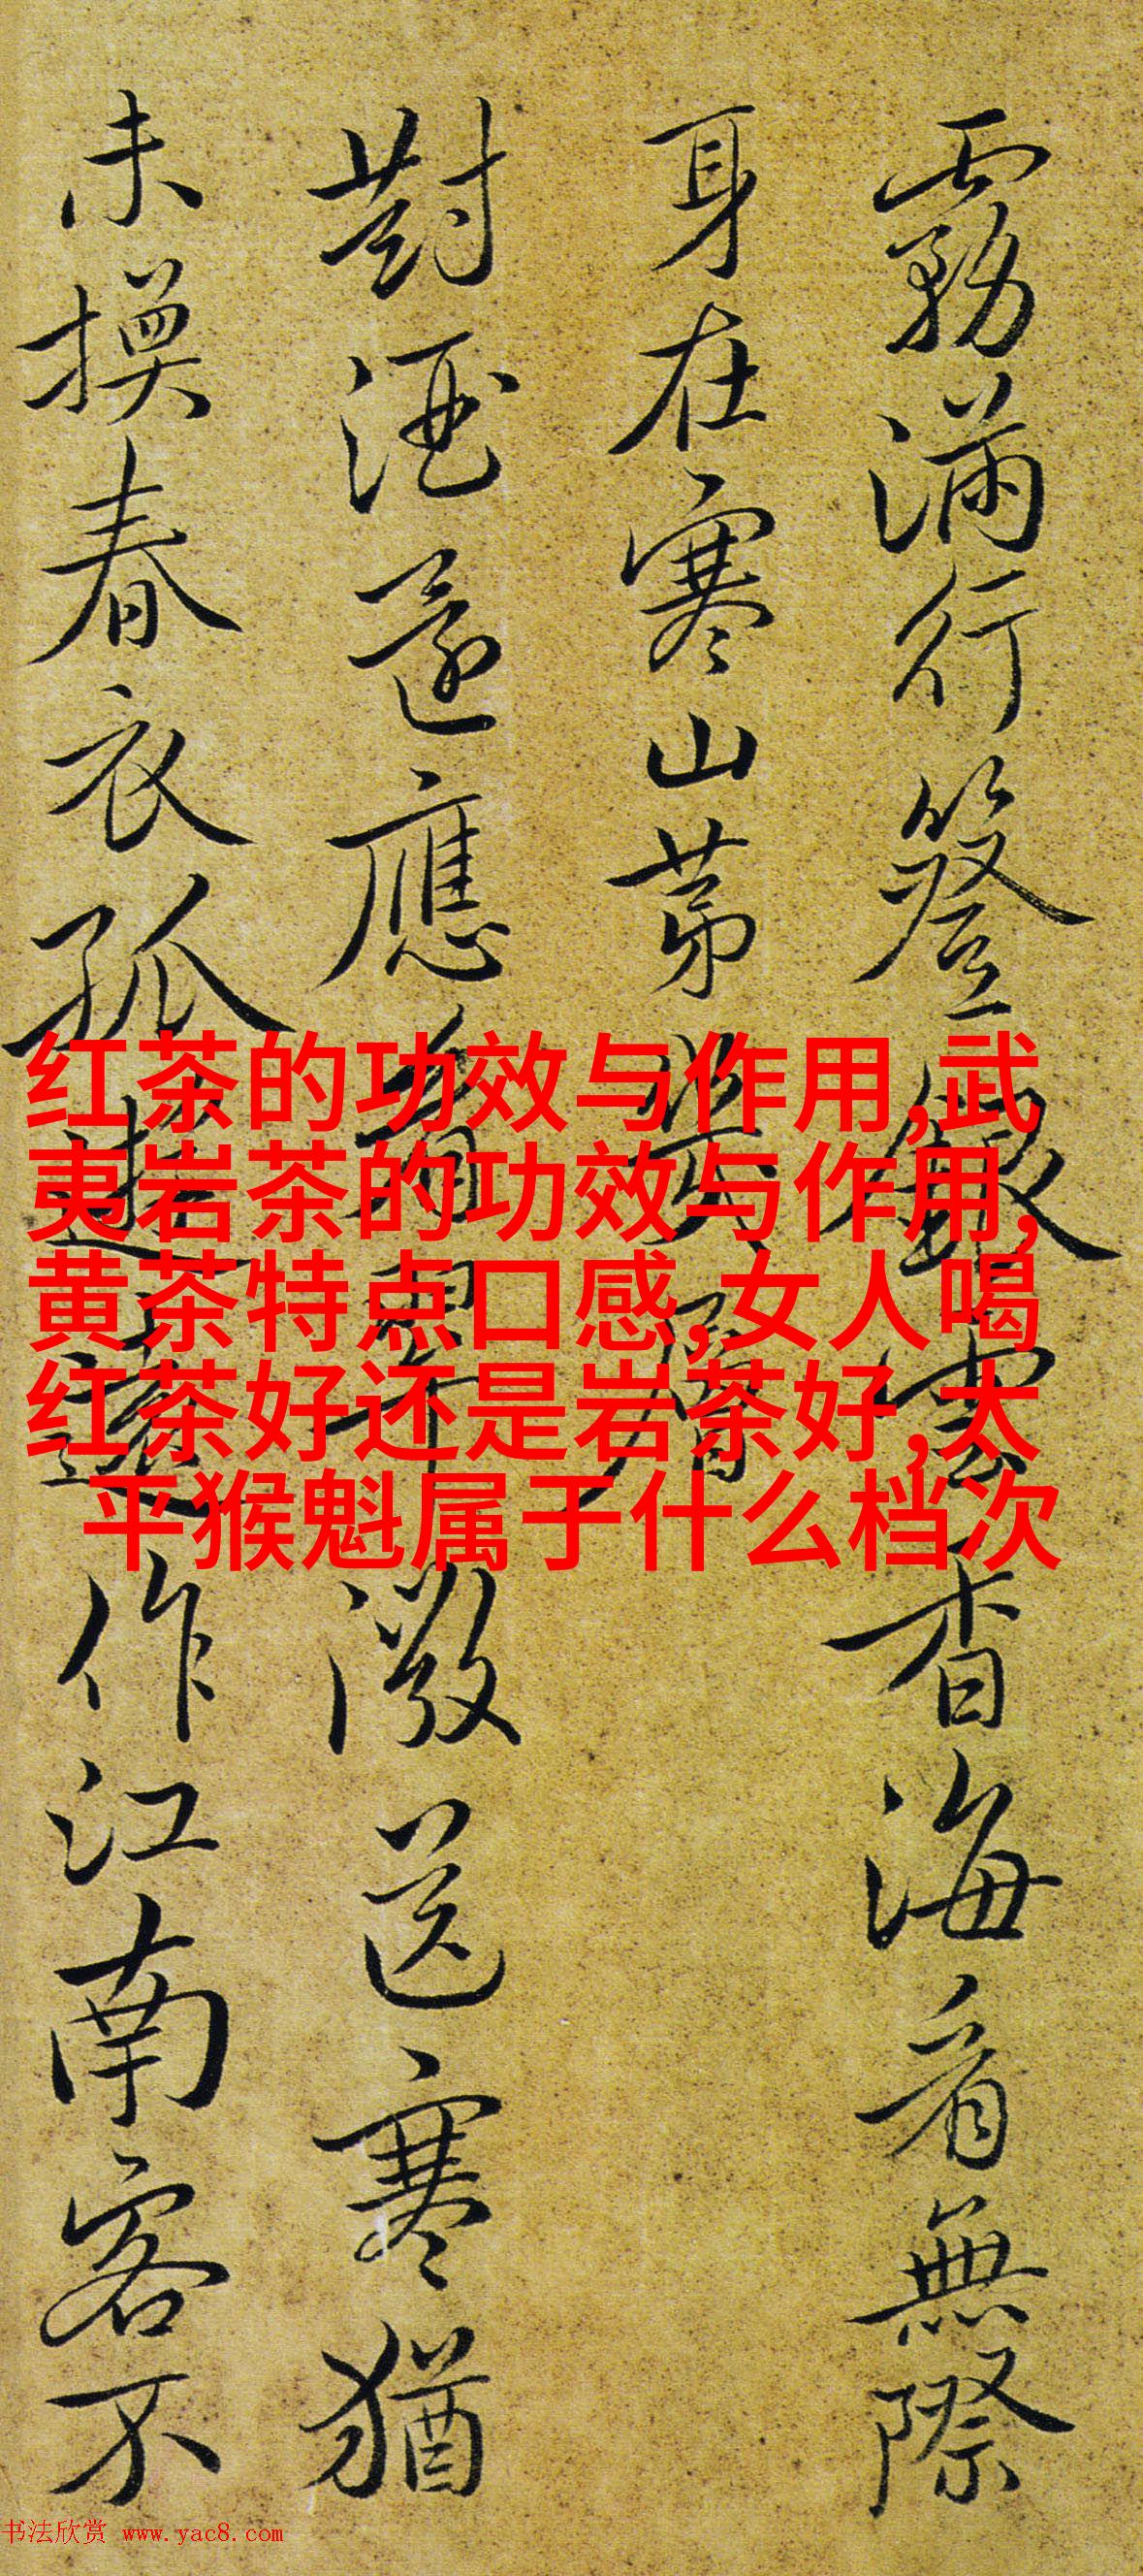 霧滿行簦銀雲香海看無際
身在寒山第幾層
對酒還應送寒猶
未換春衣孤作江南客不
红茶的功效与作用,武
夷岩茶的功效与作用,
黄茶特点口感,女人喝
红茶好还是岩茶好,太
平猴魁属于什么档次
书法欣赏 www.yac8.com